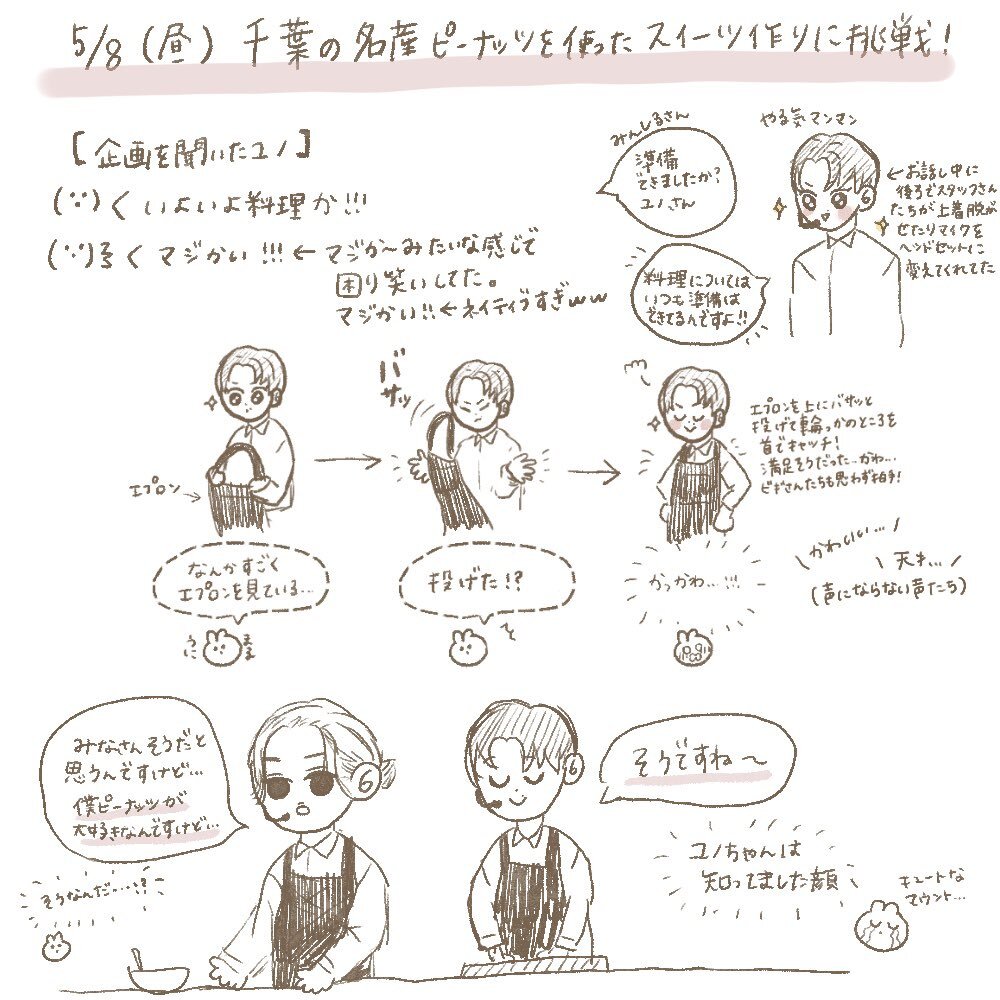 5/8(昼)千葉の名産ピーナッツを使ったスイーツ作りに挑戦!
【企画を聞いたユノ】
(∵)く いよいよ料理か!!!
(∵)弓く マジかい!!!←マジか〜みたいな感じで
困り笑いしてた。
マジかい!!←ネイティブすぎww
みんしるさん
準備
できましたか?
ユノさん
やる気マンマン
←お話し中に
後ろでスタッフさん
たちが上着脱が
せたりマイクを
ヘッドセットに
変えてくれてた
料理については
いつも準備は
できてるんですよ!!
エプロン→
バサッ
エプロンを上にバサッと
投げて輪っかのところを
首でキャッチ!
満足そうだった…かわ…
ビギさんたちも思わず拍手!
なんかすごく
エプロンを見ている…
投げた!?
かっかわ…!!!
\かわいい…/
\天才…/
(声にならない声たち)
うに
まま
みなさんそうだと
思うんですけど…
僕ピーナッツが
大好きなんですけど…
そうなんだ…!?
そうですね〜
ユノちゃんは
知ってました顔
キュートな
マウント…